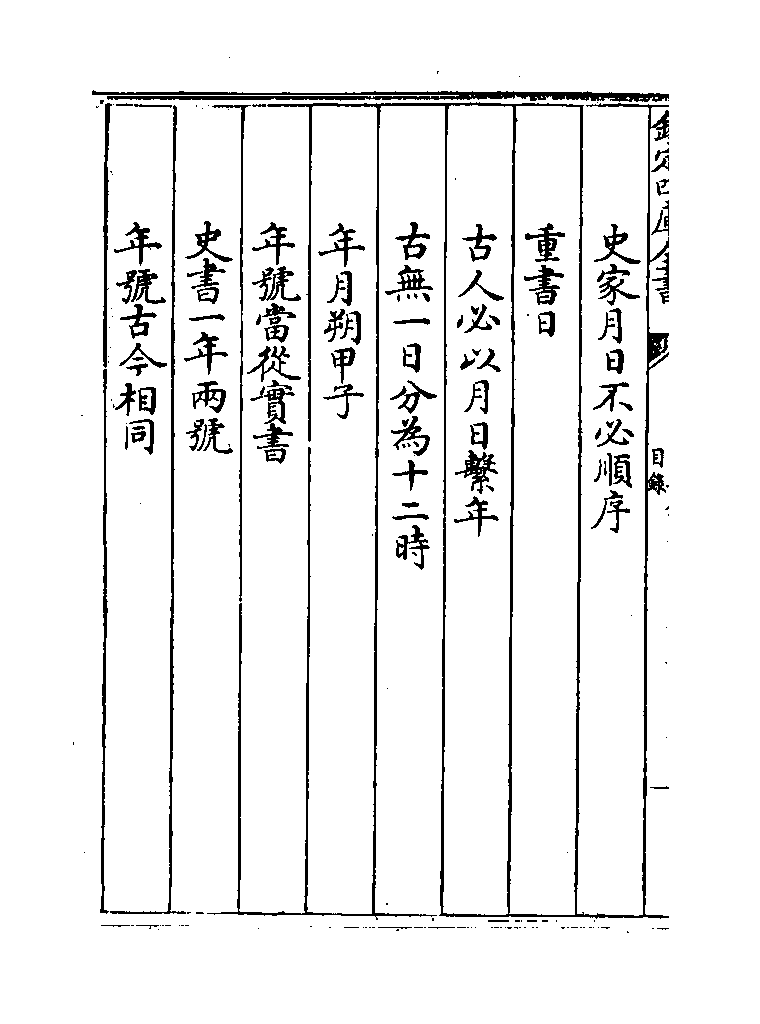 欽定四庫全書
目錄
史家月日不必順序
重書日
古人必以月日繫年
古無一日分為十二時
年月朔甲子
年號當從實書
史書一年兩號
年號古今相同